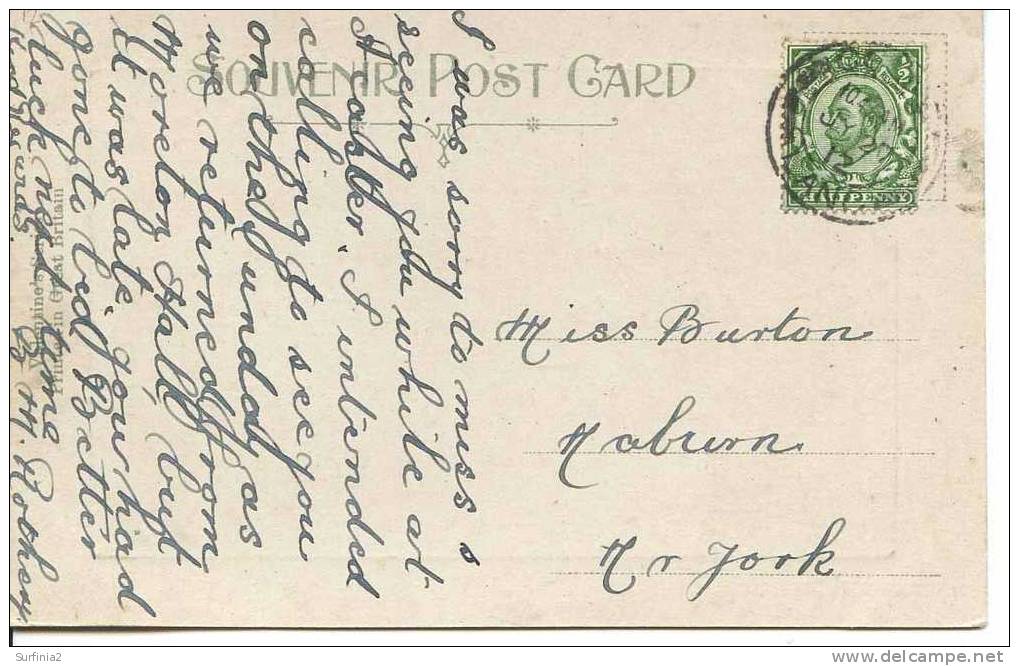 SOUVENIR POST CARD
½
HALFPENNY
I was sorry to miss s
seeing you while at
Acaster. I intended
calling to see you
on the Sunday as
we returned from
Moreton Hall, but
it was late you had
gone to bid. Better
luck next time
Kind regards.
Miss Burton
Naburn
Nr York
Printed in Great Britain
Surfinia2
www.delcampe.net